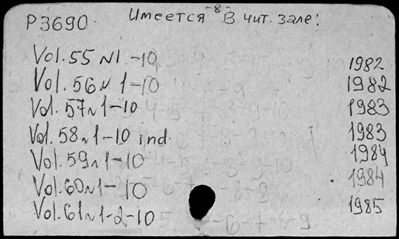 Имеется -8- В чит. зале!
P3690
Vol. 55 N1-10 1982
Vol. 56 N 1-10 1982
Vol. 57 N 1-10 1983
Vol. 58 N 1-10 ind. 1983
Vol. 59 N 1-10 1984
Vol. 60 N 1-10 1984
Vol. 61 N 1-2-10 1985